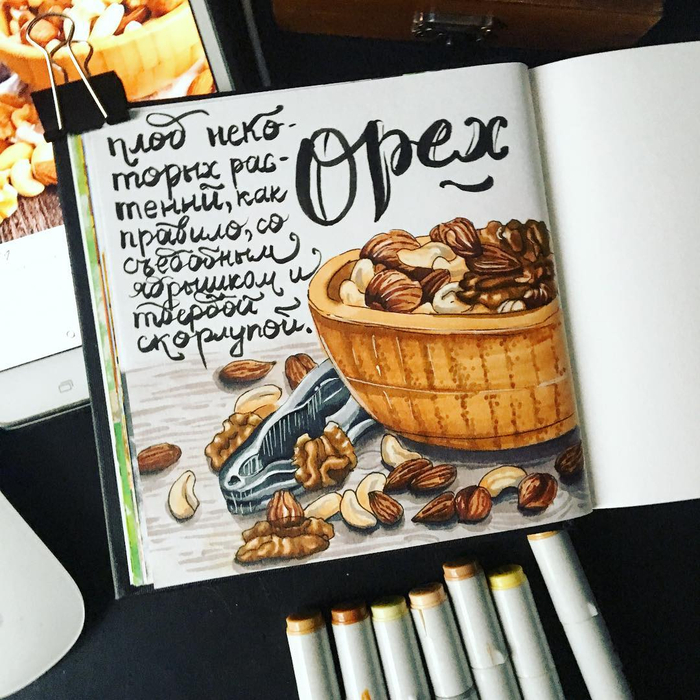 Орех
плод неко-
торых рас-
тений, как
правило, со
съедобным
ядрышком и
твердой
скорлупой.